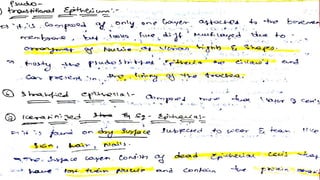 Pseudo-
transitional Epithelium:-
It is composed of only one layer attached to the basement
membrane, but looks like diff multilayed due to
arrangment of Nuclei at various hights & shapes.
Mostly the Pseudostratified Epithelia are ciliated and
can present in the lining of the trachea.
Stratified epithelia:- composed more than layer of cells
Keratinized St. Sq. Epithelia:-
it is found on dry surface subjected to wear & tear like
Skin, hair, nails.
The surface layer consists of dead Epithelial cells that
have lost their nuclei and contain the protein